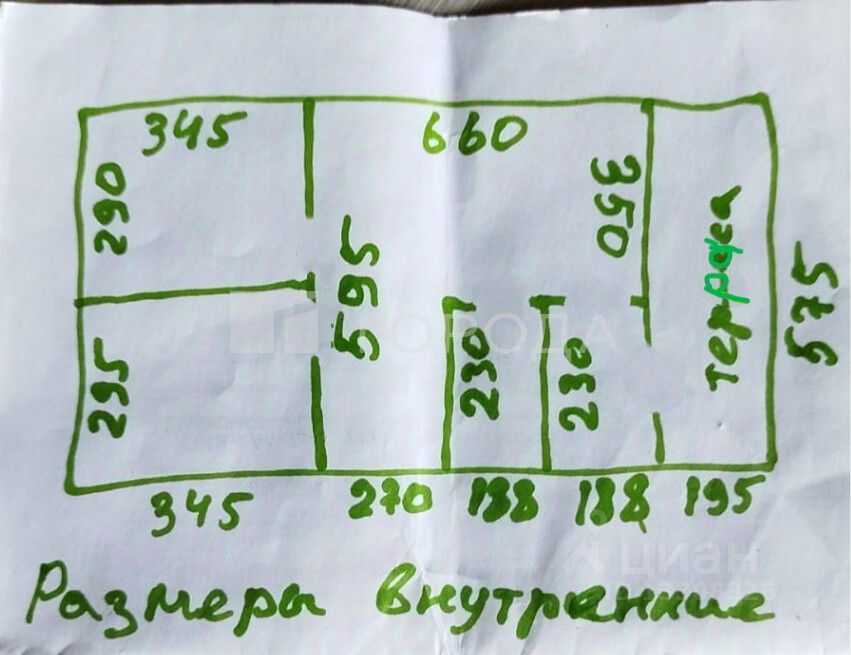 345
660
290
350
595
терраса
575
295
230
230
ГОРОДА
345
270
188
188
195
циан
Размеры внутренние